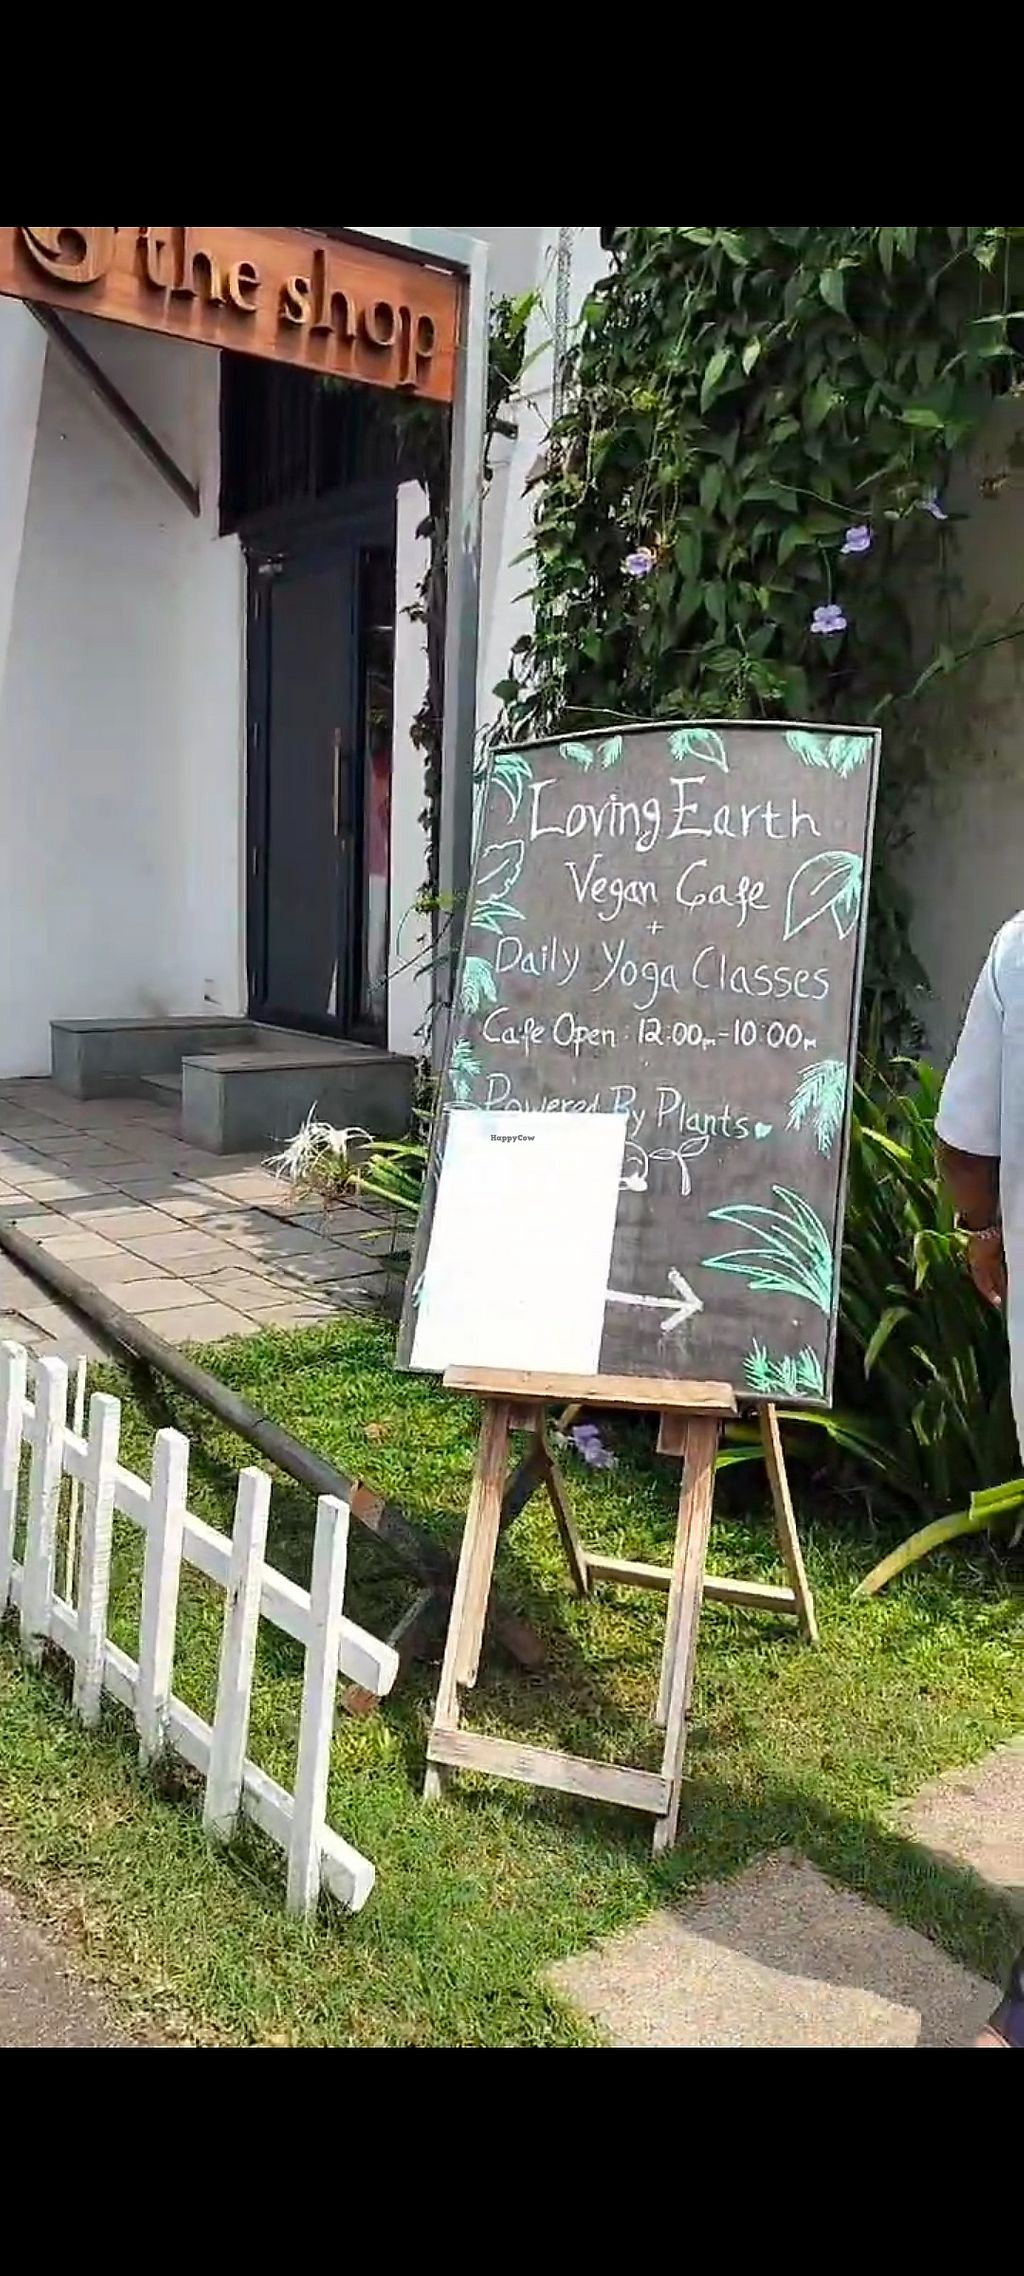 the shop
Loving Earth
Vegan Cafe
+
Daily Yoga Classes
Cafe Open : 12:00pm-10:00pm
Powered By Plants
HappyCow